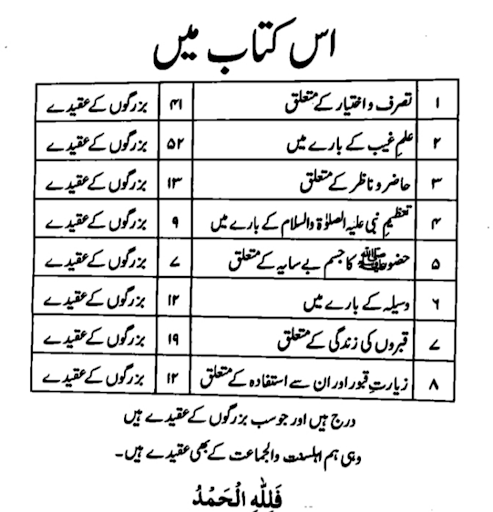 اس کتاب میں
۱ تصرف و اختیار کے متعلق ۴۱ بزرگوں کے عقیدے
۲ علمِ غیب کے بارے میں ۵۲ بزرگوں کے عقیدے
۳ حاضر و ناظر کے متعلق ۱۳ بزرگوں کے عقیدے
۴ تعظیمِ نبی علیہ الصلوٰۃ والسلام کے بارے میں ۹ بزرگوں کے عقیدے
۵ حضور ﷺ کا جسم بے سایہ کے متعلق ۷ بزرگوں کے عقیدے
۶ وسیلہ کے بارے میں ۱۲ بزرگوں کے عقیدے
۷ قبروں کی زندگی کے متعلق ۱۹ بزرگوں کے عقیدے
۸ زیارتِ قبور اور ان سے استفادہ کے متعلق ۱۲ بزرگوں کے عقیدے
درج ہیں اور جو سب بزرگوں کے عقیدے ہیں
وہی ہم اہلسنت والجماعت کے بھی عقیدے ہیں۔
فَلِلّٰہِ الْحَمْدُ